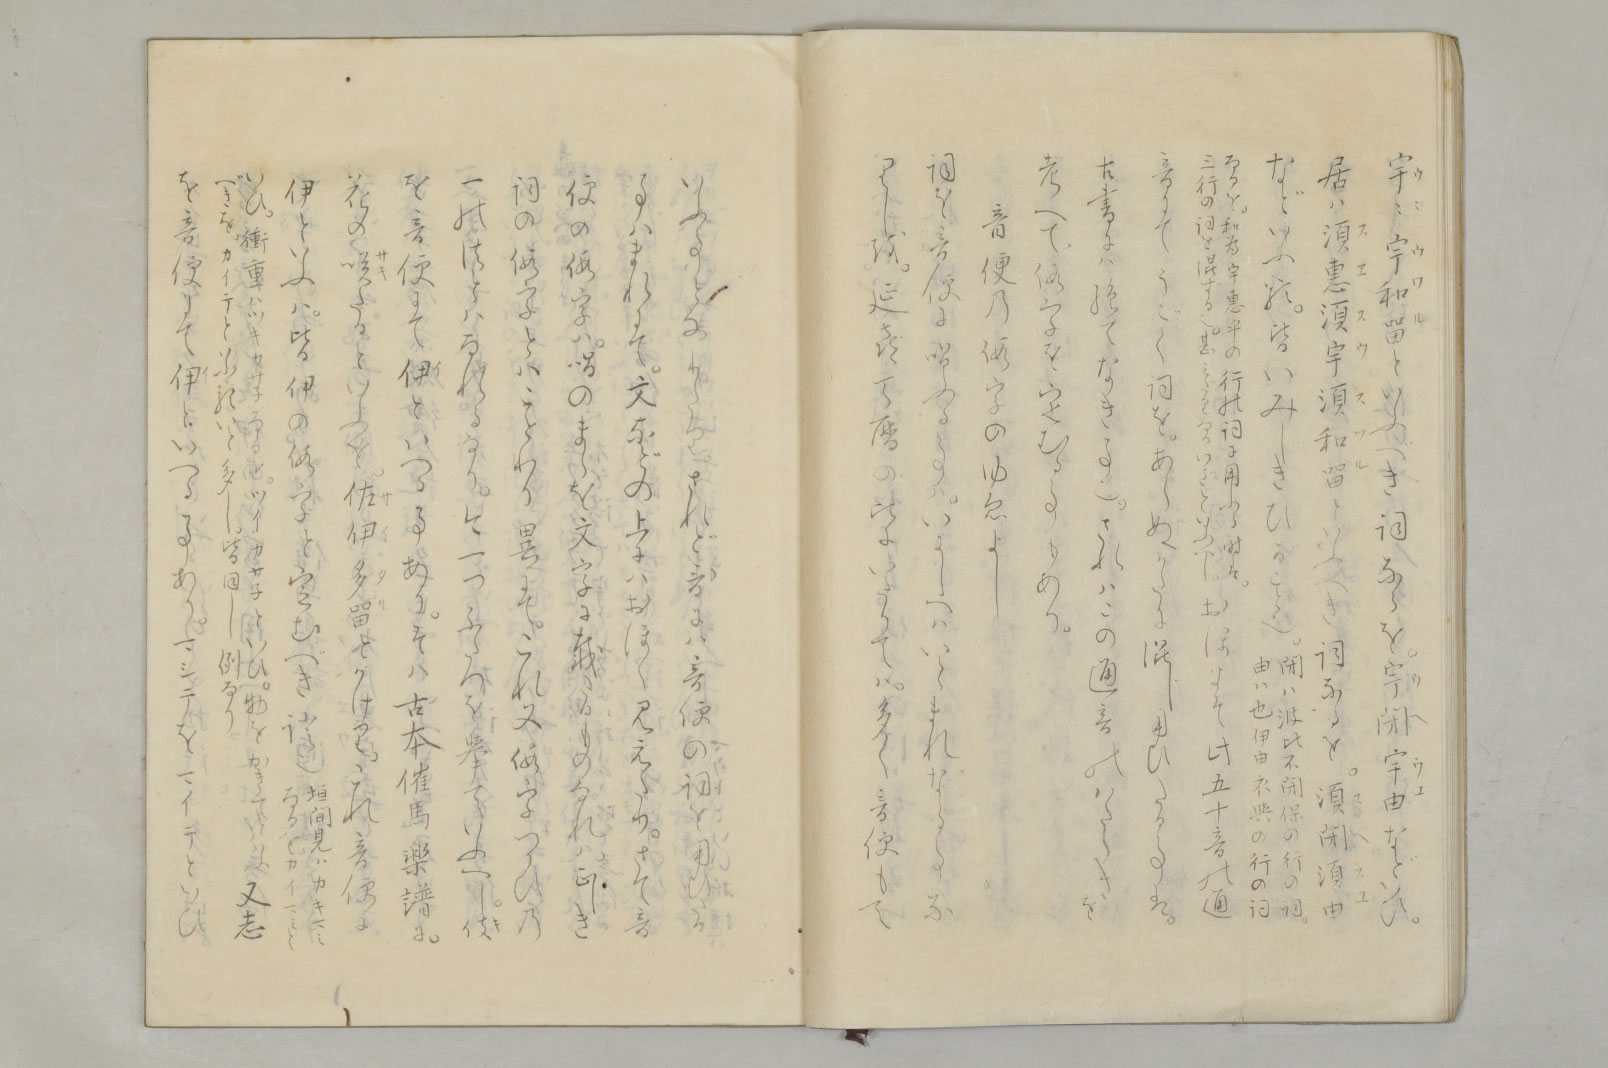 宇ニ宇和留といふべき詞なるを。宇閇宇由などいひ。
居ハ須惠須宇須和留といふべき詞なるを。須閇須由
などいふ類。皆いみじきひがこと也。閇ハ波比不閇保の行の詞。
由ハ也伊由衣與の行の詞
なるを。和為宇惠乎の行の詞に用ふる時は。
三行の詞を混する也。
おほよそ此五十音の通
音にてうごく詞を。あらぬかたに混じ用ひたる事は。
古書には絶てなき事也。されハこの通音のはたらきを
考へて。仮字を定むる事もあり。
音便乃仮字のゆゑよし
詞を音便に唱ふる事ハ。いにしへハいとまれなる事な
りしを。延喜天暦の比にいたりてハ。多く音便もて
いふ事となりたる。されど哥にハ音便の詞を用ひた
る事ハまれにて。文などの上にハおほく見えたり。さて音
便の仮字ハ。唱のまゝを文字に載たるものなれハ正しき
詞の仮字とハことわり異也。これ又仮字つかひ乃
一の法とハなれるなり。今一つふたつを挙ていふべし。伎
を音便にて伊といへる事あり。そハ古本催馬楽譜に。
花の咲たるといふを。佐伊多留とかけり。これ音便に
伊といふハ。皆伊の仮字と定むべき證也。垣間見ハカキマミ
なるをカイマミと
いひ。衝重ハツキカサネなるを。ツイカサネといひ。物をかきて
べきを。カイテといふ類いと多し。皆同し例なり。
又志
を音便にて伊といへる事あり。マシテをマイテといひ